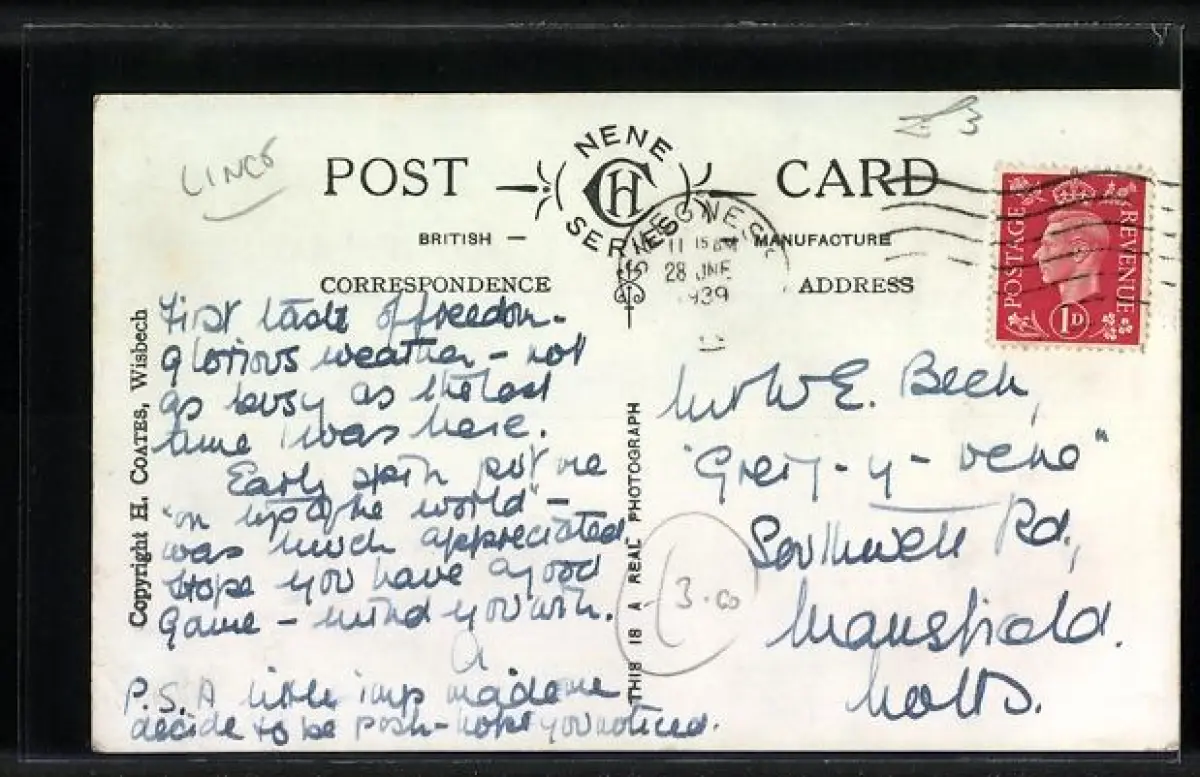 LINCS
£3
POST CARD
NENE
CH
SERIES
BRITISH — — MANUFACTURE
CORRESPONDENCE
ADDRESS
SKEGNESS
11 15 AM
28 JNE
1939
POSTAGE REVENUE
1D
Copyright H. COATES, Wisbech
THIS IS A REAL PHOTOGRAPH
First taste of freedom –
glorious weather – not
as busy as the last
time I was here.
Early spin put me
"on top of the world" –
was much appreciated
Hope you have a good
game – mind you win.
P.S. A little imp made me
decide to be posh – hope you noticed.
Mr W E. Beech,
Southwell Rd.,
Mansfield.
Notts.
3.00